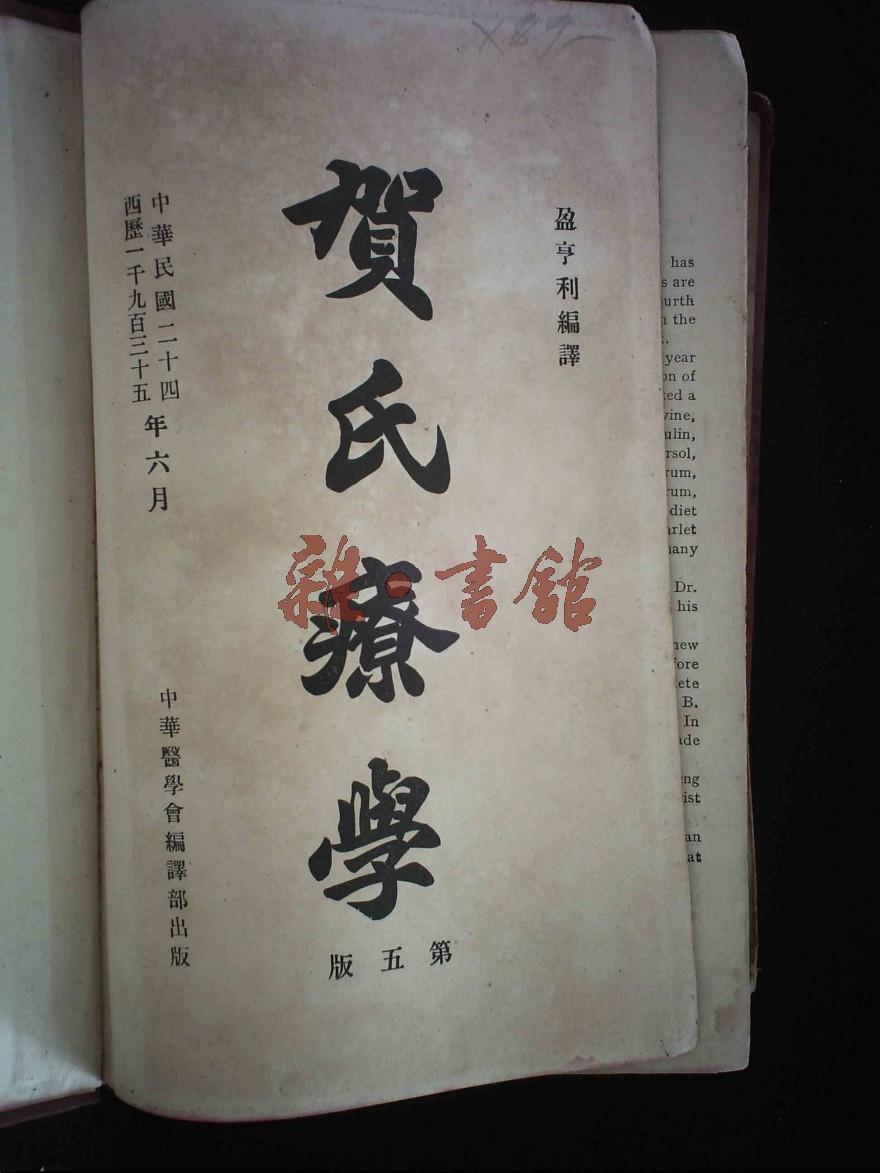 盈亨利編譯
賀氏療學
第五版
中華民國二十四
西歷一千九百三十五
年六月
中華醫學會編譯部出版
雜·書館
has
s are
urth
the
year
on of
ed a
vine,
ulin,
rsol,
rum,
rum,
diet
arlet
many
Dr.
his
new
fore
lete
B.
In
ade
ng
ist
an
at